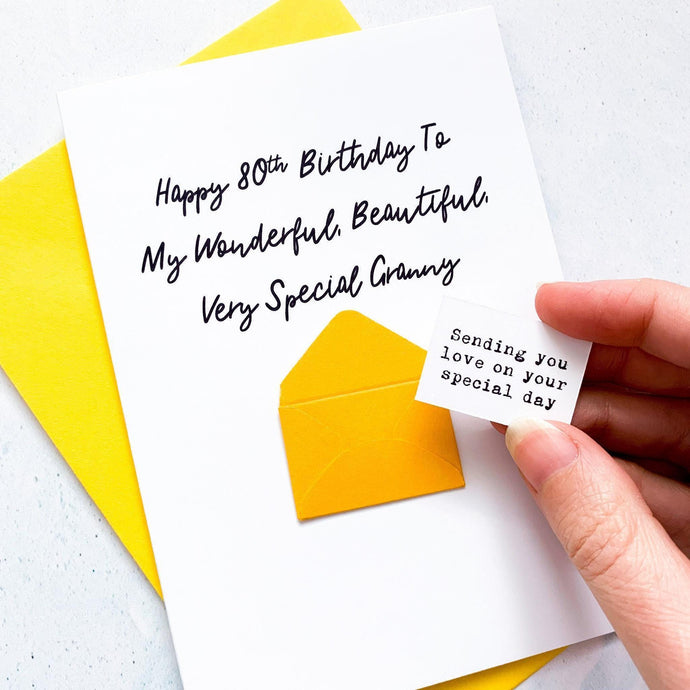 Happy 80th Birthday To
My Wonderful, Beautiful,
Very Special Granny
Sending you
love on your
special day